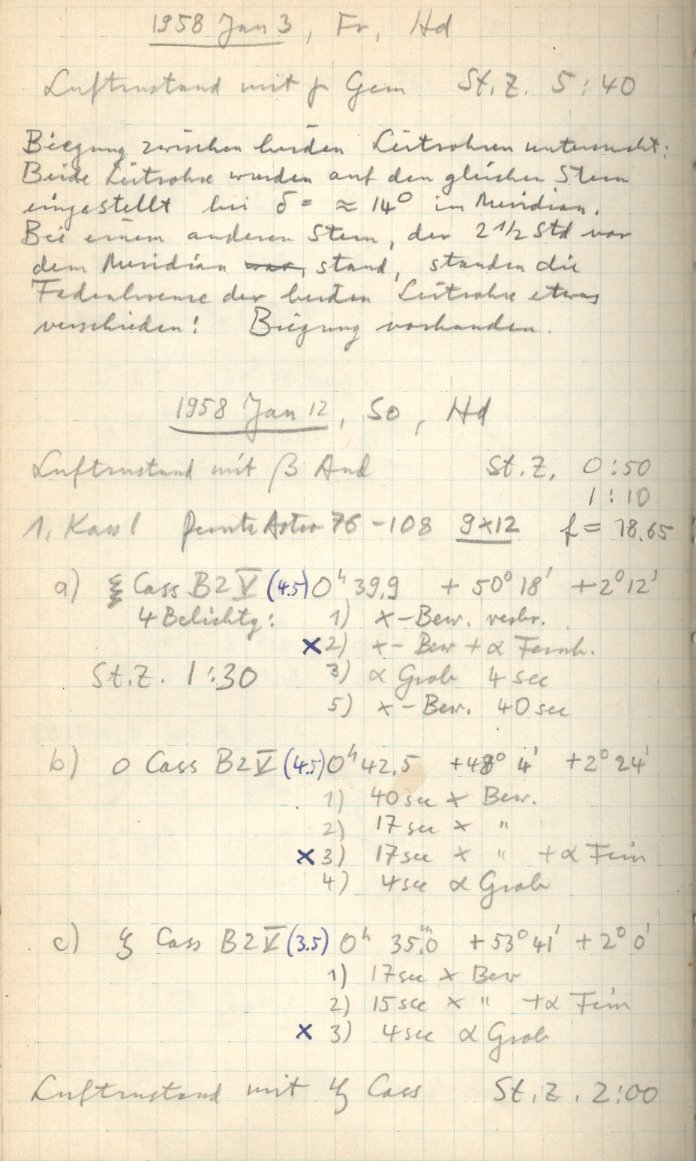 1958 Jan 3, Fr, Hd
Luftzustand mit γ Gem St.Z. 5:40
Biegung zwischen beiden Leitrohren untersucht:
Beide Leitrohre wurden auf den gleichen Stern
eingestellt bei δ = ≈ 14° im Meridian.
Bei einem anderen Stern, der 2 1/2 Std vor
dem Meridian war, stand, standen die
Fadenkreuze der beiden Leitrohre etwas
verschieden! Biegung vorhanden.
1958 Jan 12, So, Hd
Luftzustand mit β And St.Z. 0:50
1:10
1. Kass 1 Astro 76-108 9x12 f = 18,65
a) ξ Cass B2 V (4.5) 0h 39,9 + 50° 18' +2° 12'
4 Belichtg: 1) x-Bew. verbr.
x 2) x-Bew + α Feinb.
St.Z. 1:30 3) α Grob 4 sec
5) x-Bew. 40 sec
b) o Cass B2 V (4.5) 0h 42,5 +48° 4' +2° 24'
1) 40 sec x Bew.
2) 17 sec x "
x 3) 17 sec x " +α Fein
4) 4 sec α Grob
c) ζ Cass B2 V (3.5) 0h 35,m0 +53° 41' +2° 0'
1) 17 sec x Bew
2) 15 sec x " +α Fein
x 3) 4 sec α Grob
Luftzustand mit ζ Cass St.Z. 2:00